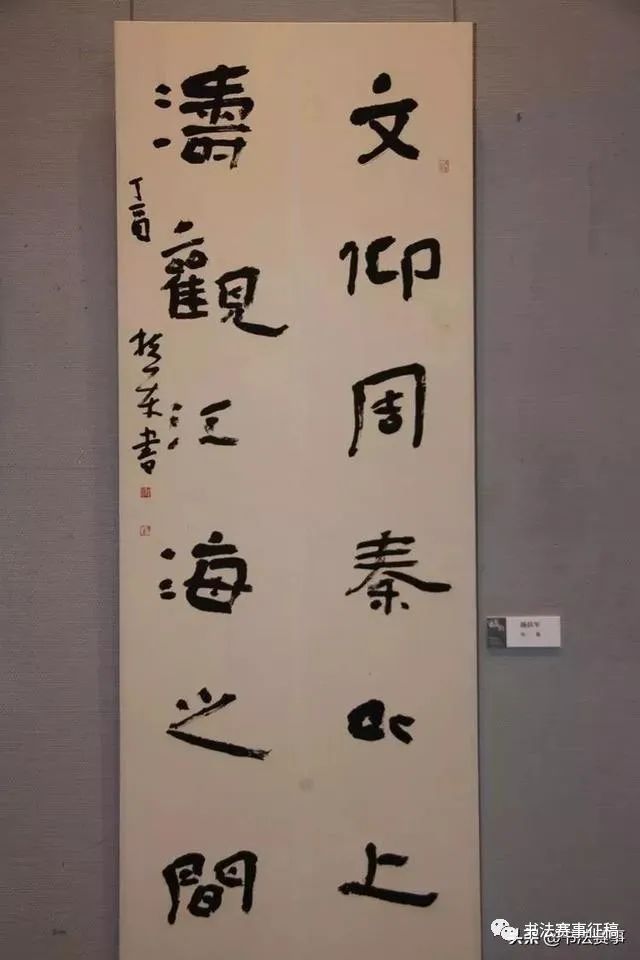 文仰周秦以上
濤觀江海之間
丁酉
書
书法赛事征稿
头条 @书法赛事